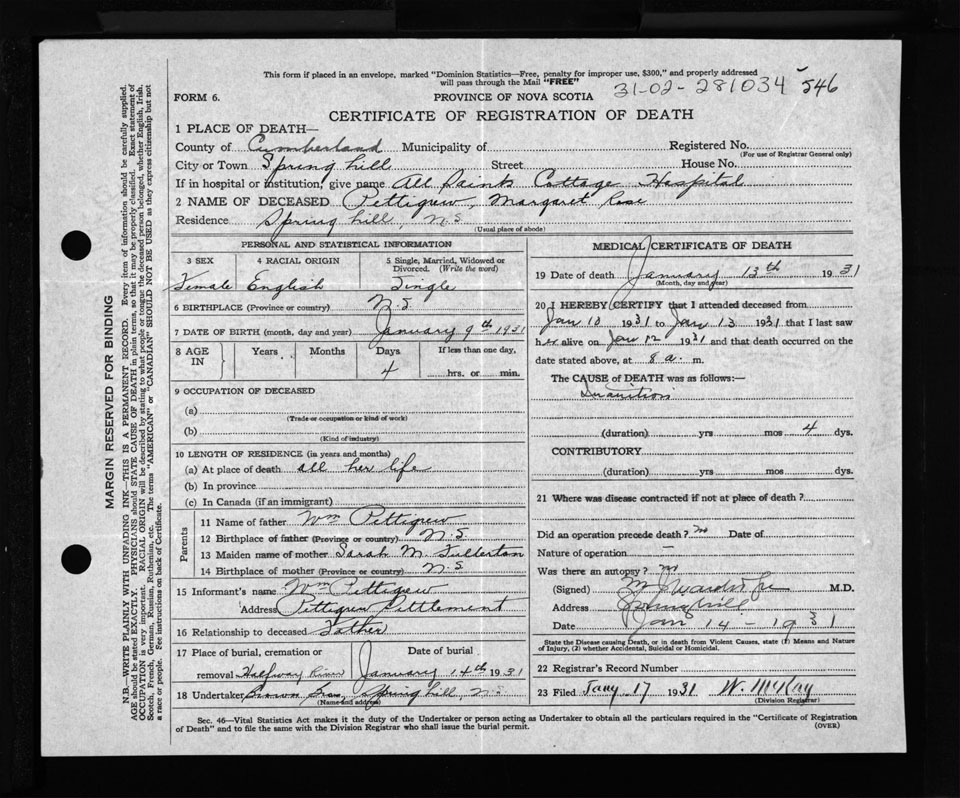 This form if placed in an envelope, marked "Dominion Statistics—Free, penalty for improper use, $300," and properly addressed
will pass through the Mail "FREE"
31-02-281034 546
FORM 6. PROVINCE OF NOVA SCOTIA
CERTIFICATE OF REGISTRATION OF DEATH
1 PLACE OF DEATH—
County of Cumberland Municipality of Registered No.
(For use of Registrar General only)
City or Town Spring hill Street House No.
If in hospital or institution, give name All Saints Cottage Hospital
2 NAME OF DECEASED Pettigrew, Margaret Rose
Residence Spring hill, N.S.
(Usual place of abode)
PERSONAL AND STATISTICAL INFORMATION
3 SEX 4 RACIAL ORIGIN 5 Single, Married, Widowed or
Divorced. (Write the word)
Female English Single
6 BIRTHPLACE (Province or country) N.S
7 DATE OF BIRTH (month, day and year) January 9th 1931
8 AGE IN Years Months Days If less than one day,
4 hrs. or min.
9 OCCUPATION OF DECEASED
(a)
(Trade or occupation or kind of work)
(b)
(Kind of industry)
10 LENGTH OF RESIDENCE (in years and months)
(a) At place of death all her life
(b) In province
(c) In Canada (if an immigrant)
Parents
11 Name of father Wm Pettigrew
12 Birthplace of father (Province or country) N.S.
13 Maiden name of mother Sarah M. Fullerton
14 Birthplace of mother (Province or country) N.S
15 Informant's name Wm Pettigrew
Address Pettigrew Settlement
16 Relationship to deceased Father
17 Place of burial, cremation or Date of burial
removal Halfway River January 14th 1931
18 Undertaker Brown Spring hill, N.S.
(Name and address)
MEDICAL CERTIFICATE OF DEATH
19 Date of death January 13th 1931
(Month, day and year)
20 I HEREBY CERTIFY that I attended deceased from
Jan 10 1931 to Jan 13 1931 that I last saw
her alive on Jan 12 1931 and that death occurred on the
date stated above, at 8 a. m.
The CAUSE of DEATH was as follows:—
Inanition
(duration) yrs mos 4 dys.
CONTRIBUTORY
(duration) yrs mos dys.
21 Where was disease contracted if not at place of death?
Did an operation precede death? no Date of
Nature of operation —
Was there an autopsy? no
(Signed) M.D.
Address Springhill
Date Jan 14 - 1931
State the Disease causing Death, or in death from Violent Causes, state (1) Means and Nature
of Injury, (2) whether Accidental, Suicidal or Homicidal.
22 Registrar's Record Number
23 Filed Jany 17 1931 W. McKay
(Division Registrar)
Sec. 46—Vital Statistics Act makes it the duty of the Undertaker or person acting as Undertaker to obtain all the particulars required in the "Certificate of Registration
of Death" and to file the same with the Division Registrar who shall issue the burial permit.
(OVER)
MARGIN RESERVED FOR BINDING
N.B.—WRITE PLAINLY WITH UNFADING INK—THIS IS A PERMANENT RECORD. Every item of information should be carefully supplied.
AGE should be stated EXACTLY. PHYSICIANS should STATE CAUSE OF DEATH in plain terms, so that it may be properly classified. Exact statement of
OCCUPATION is very important. RACIAL ORIGIN will be described by stating to what people or tongue the deceased person belonged, whether English, Irish,
Scotch, French, German, Russian, Ruthenian, etc. The terms "AMERICAN" or "CANADIAN" SHOULD NOT BE USED as they express citizenship but not
a race or people. Fee instructions on back of Certificate.